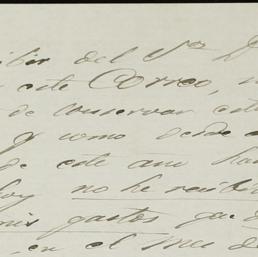 ibir del Sor D
este Correo,
de conservar est
y como desde
de este ano ha
hoy no he recibi
mis gastos que
en el mes d